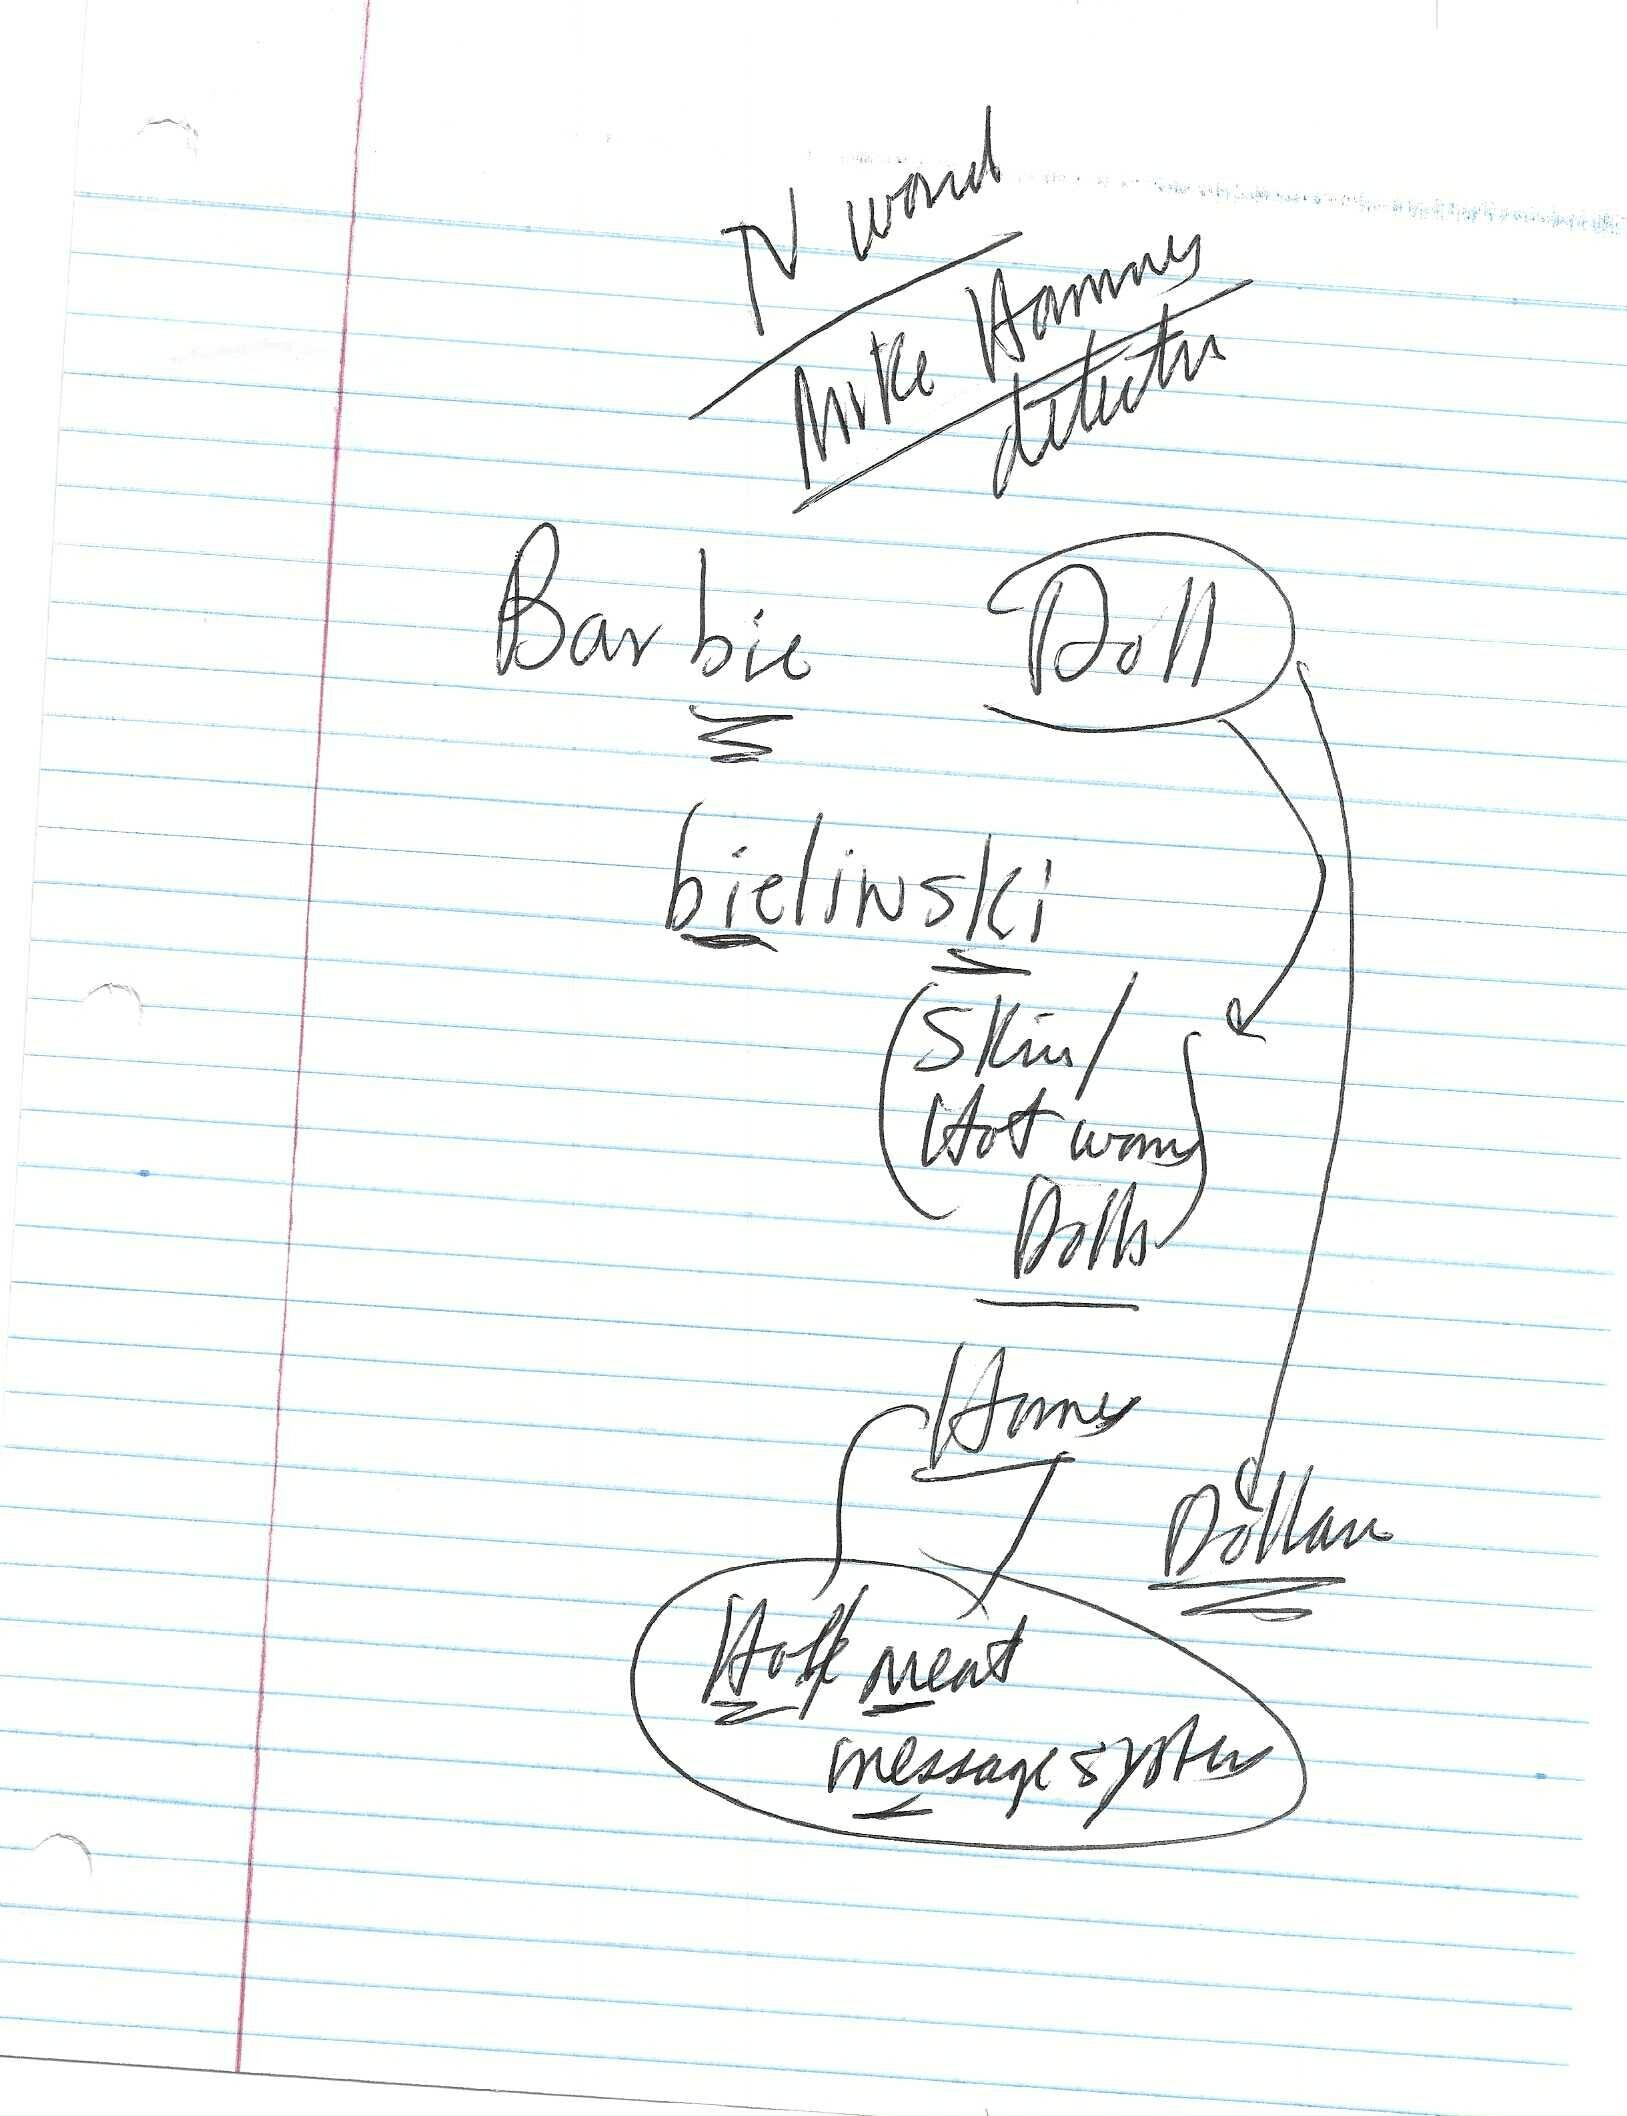 TV word
Mike Hammer
detective
Barbie Doll
bielinski
(Skin/
Hot woman
Dolls)
Home
Dollar
meat
message system